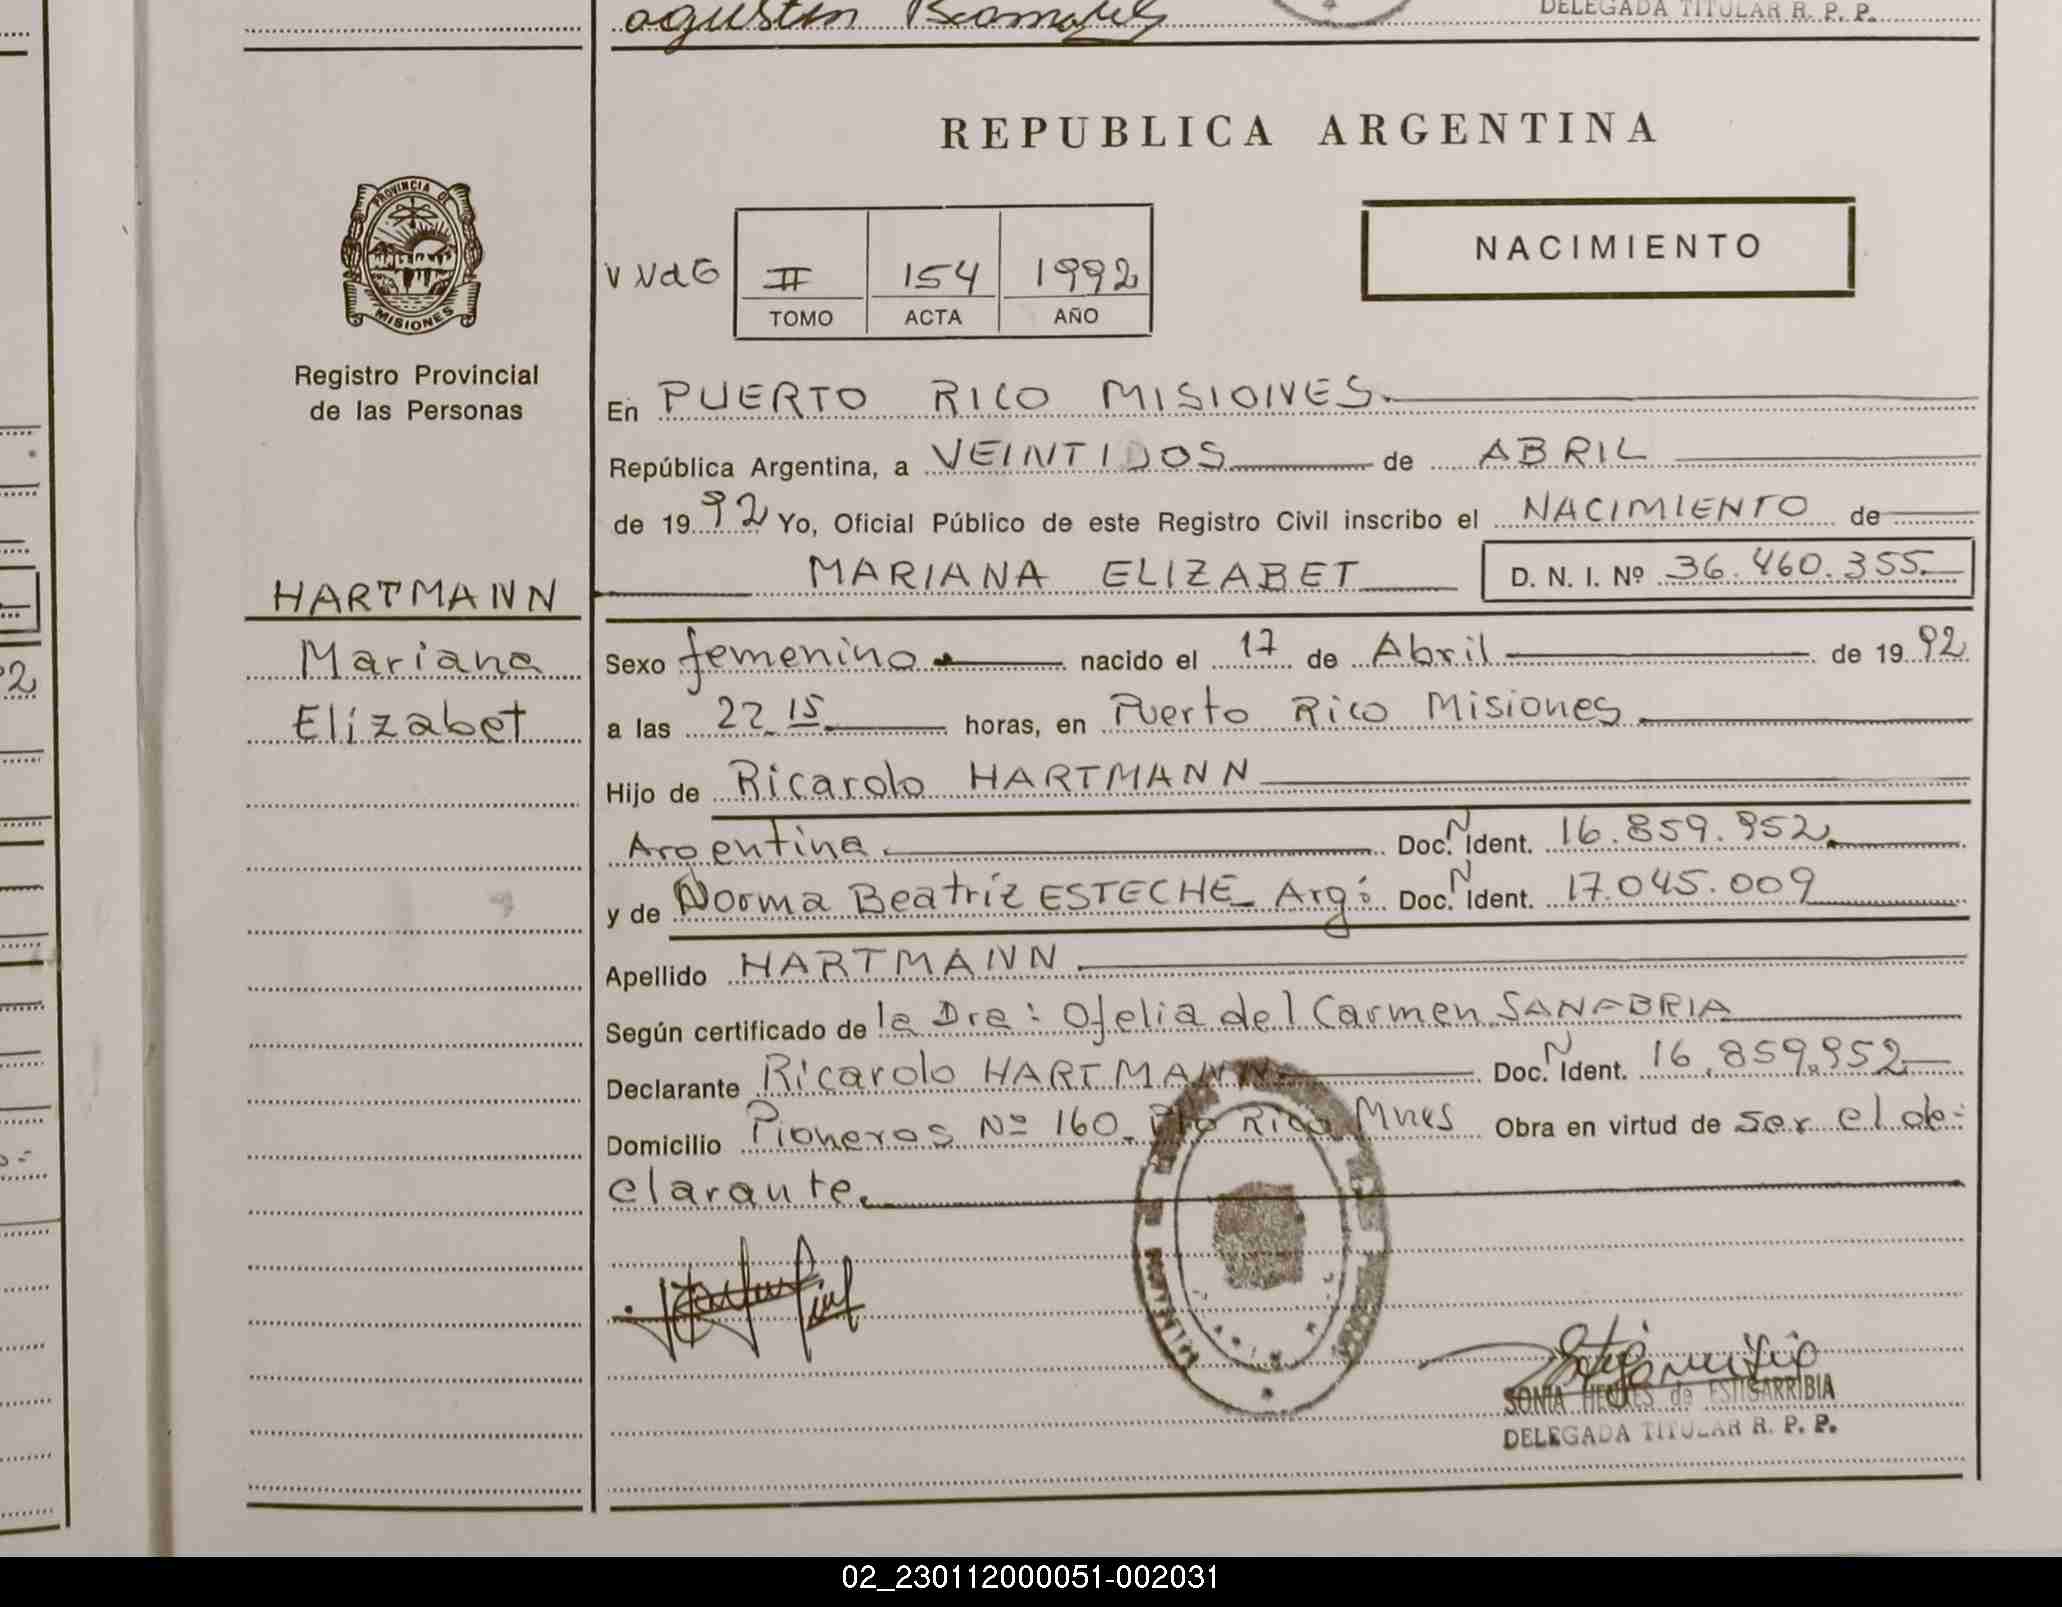 agustin
DELEGADA TITULAR R. P. P.
REPUBLICA ARGENTINA
PROVINCIA DE
MISIONES
Registro Provincial
de las Personas
NACIMIENTO
II 154 1992
TOMO ACTA AÑO
En PUERTO RICO MISIONES
República Argentina, a VEINTIDOS de ABRIL
de 1992 Yo, Oficial Público de este Registro Civil inscribo el NACIMIENTO de
MARIANA ELIZABET D. N. I. Nº 36.460.355
HARTMANN
Mariana
Elizabet
Sexo femenino nacido el 17 de Abril de 1992
a las 22 15 horas, en Puerto Rico Misiones
Hijo de Ricardo HARTMANN
Argentina Doc. N Ident. 16.859.952
y de Norma Beatriz ESTECHE Arg: Doc. N Ident. 17.045.009
Apellido HARTMANN
Según certificado de la Dra: Ofelia del Carmen SANABRIA
Declarante Ricardo HARTMANN Doc. N Ident. 16.859.952
Domicilio Pioneros Nº 160 Pto Rico Mnes Obra en virtud de ser el de-
clarante.
SONIA de ESTIGARRIBIA
DELEGADA TITULAR R. P. P.
02_230112000051-002031